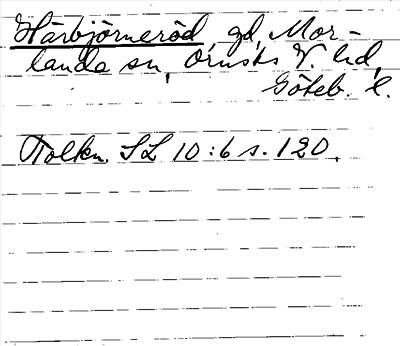 Härbjörneröd, gd, Mor-
landa sn, Orusts V. hd,
Göteb. l.
Tolkn. SL 10:6 s. 120.